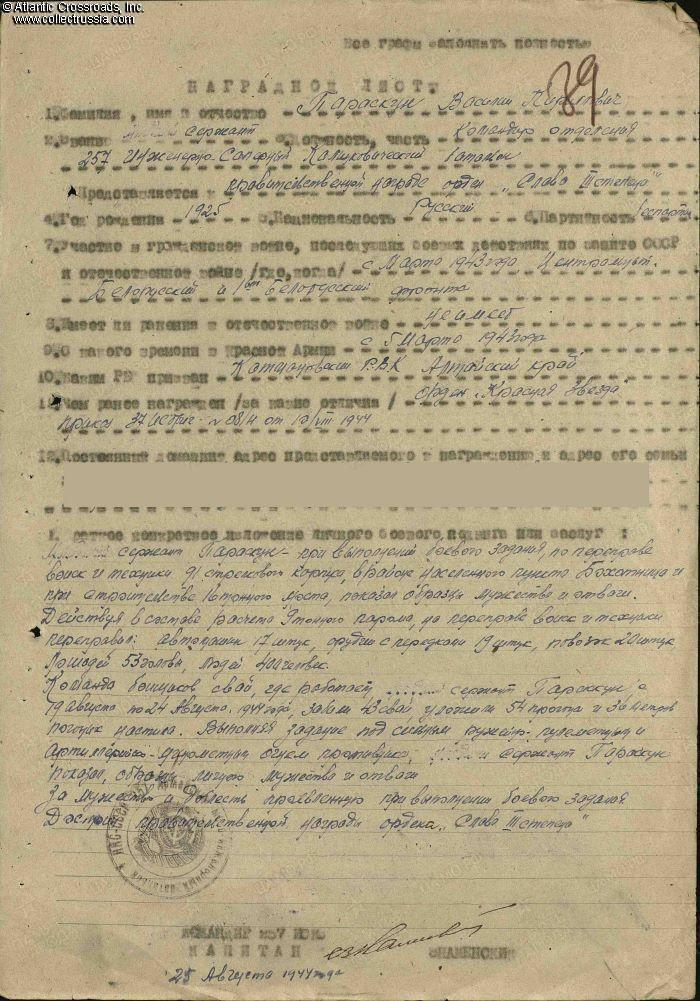 © Atlantic Crossroads, Inc.
www.collectrussia.com
Все графы заполнять полностью
89
НАГРАДНОЙ ЛИСТ
1. Фамилия, имя и отчество Параскун Василий Кирилович
2. Звание сержант 3. Должность, часть Командир отделения
257 Инженерно-Саперный Калинковичский батальон
Представляется к правительственной награде орден „Слава III степени"
4. Год рождения 1925 5. Национальность Русский 6. Партийность беспартий
7. Участие в гражданской войне, последующих боевых действиях по защите СССР
и отечественной войне /где, когда/ с Марта 1943 года Центральн.
Белорусский и 1ый Белорусский фронта
8. Имеет ли ранения в отечественной войне неимеет
9. С какого времени в Красной Армии с 5 Марта 1943 года
10. Каким РВК призван Р.В.К Алтайский край
11. Чем ранее награжден /за какие отличия/ Орден „Красная Звезда"
Приказ 08/н от 10/VIII 1944
12. Постоянный домашний адрес представляемого к награждению и адрес его семьи
1. Краткое конкретное изложение личного боевого подвига или заслуг :
сержант Параскун - при выполнении боевого задания, по переправе
войск и техники 91 стрелкового корпуса, в районе населенного пункта Бохотница и
при строительстве 16 тонного моста, показал образцы мужества и отваги.
Действуя в составе расчета 9 тонного парома, на переправе войск и техники
переправил: автомашин 17 штук, орудий с передками 19 штук, повозок 20 штук
Лошадей 53 головы, людей 400 человек.
Команда бойщиков свай, где работает сержант Параскун с
19 августа по 24 Августа 1944 года, забили 43 свай, уложили 54 прогона и 36 метров
настила. Выполняя задание под сильным ружейно, пулеметным и
Артиллерийско-минометным огнем противника, сержант Параскун
показал, образцы личного мужества и отваги
За мужество и доблесть проявленную при выполнении боевого задания
Достоин правительственной награды ордена „Слава III степени"
КОМАНДИР 257
КАПИТАН ЗНАМЕНСКИЙ
25 Августа 1944 года